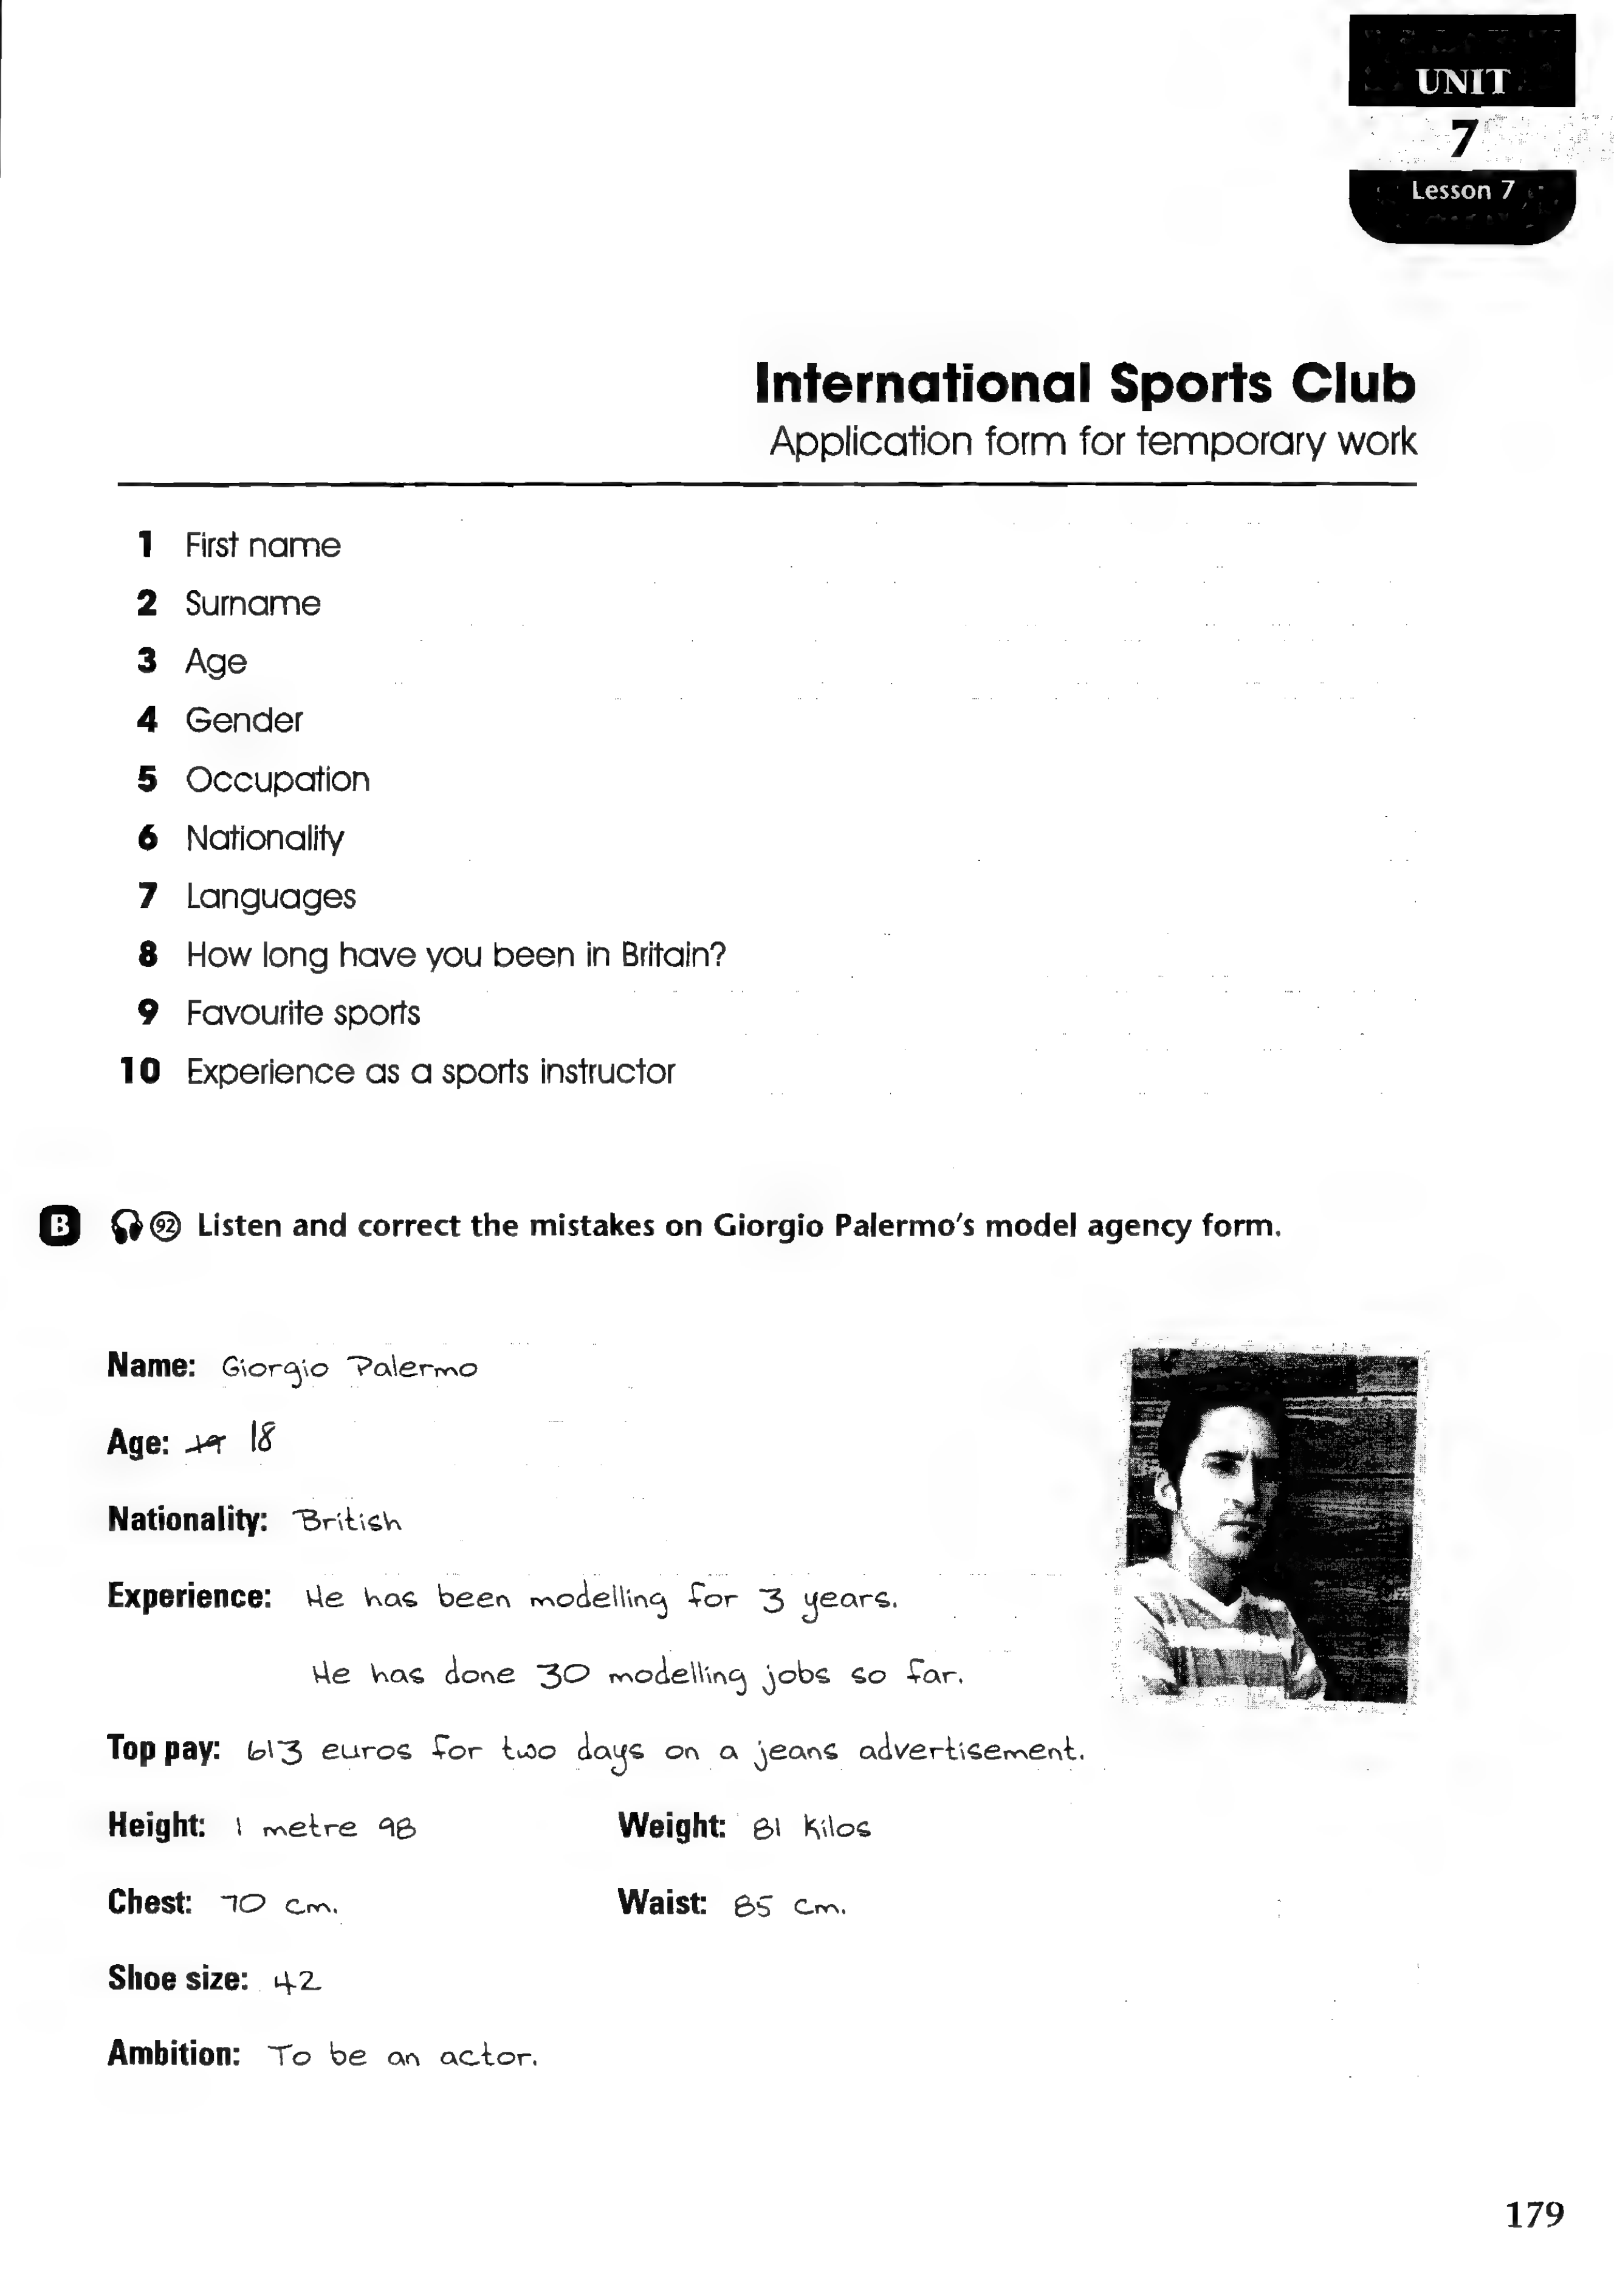 UNIT
7
Lesson 7
International Sports Club
Application form for temporary work
1 First name
2 Surname
3 Age
4 Gender
5 Occupation
6 Nationality
7 Languages
8 How long have you been in Britain?
9 Favourite sports
10 Experience as a sports instructor
B 92 Listen and correct the mistakes on Giorgio Palermo's model agency form.
Name: Giorgio Palermo
Age: 19 18
Nationality: British
Experience: He has been modelling for 3 years.
He has done 30 modelling jobs so far.
Top pay: 613 euros for two days on a jeans advertisement.
Height: 1 metre 98 Weight: 81 kilos
Chest: 70 cm. Waist: 85 cm.
Shoe size: 42
Ambition: To be an actor.
179